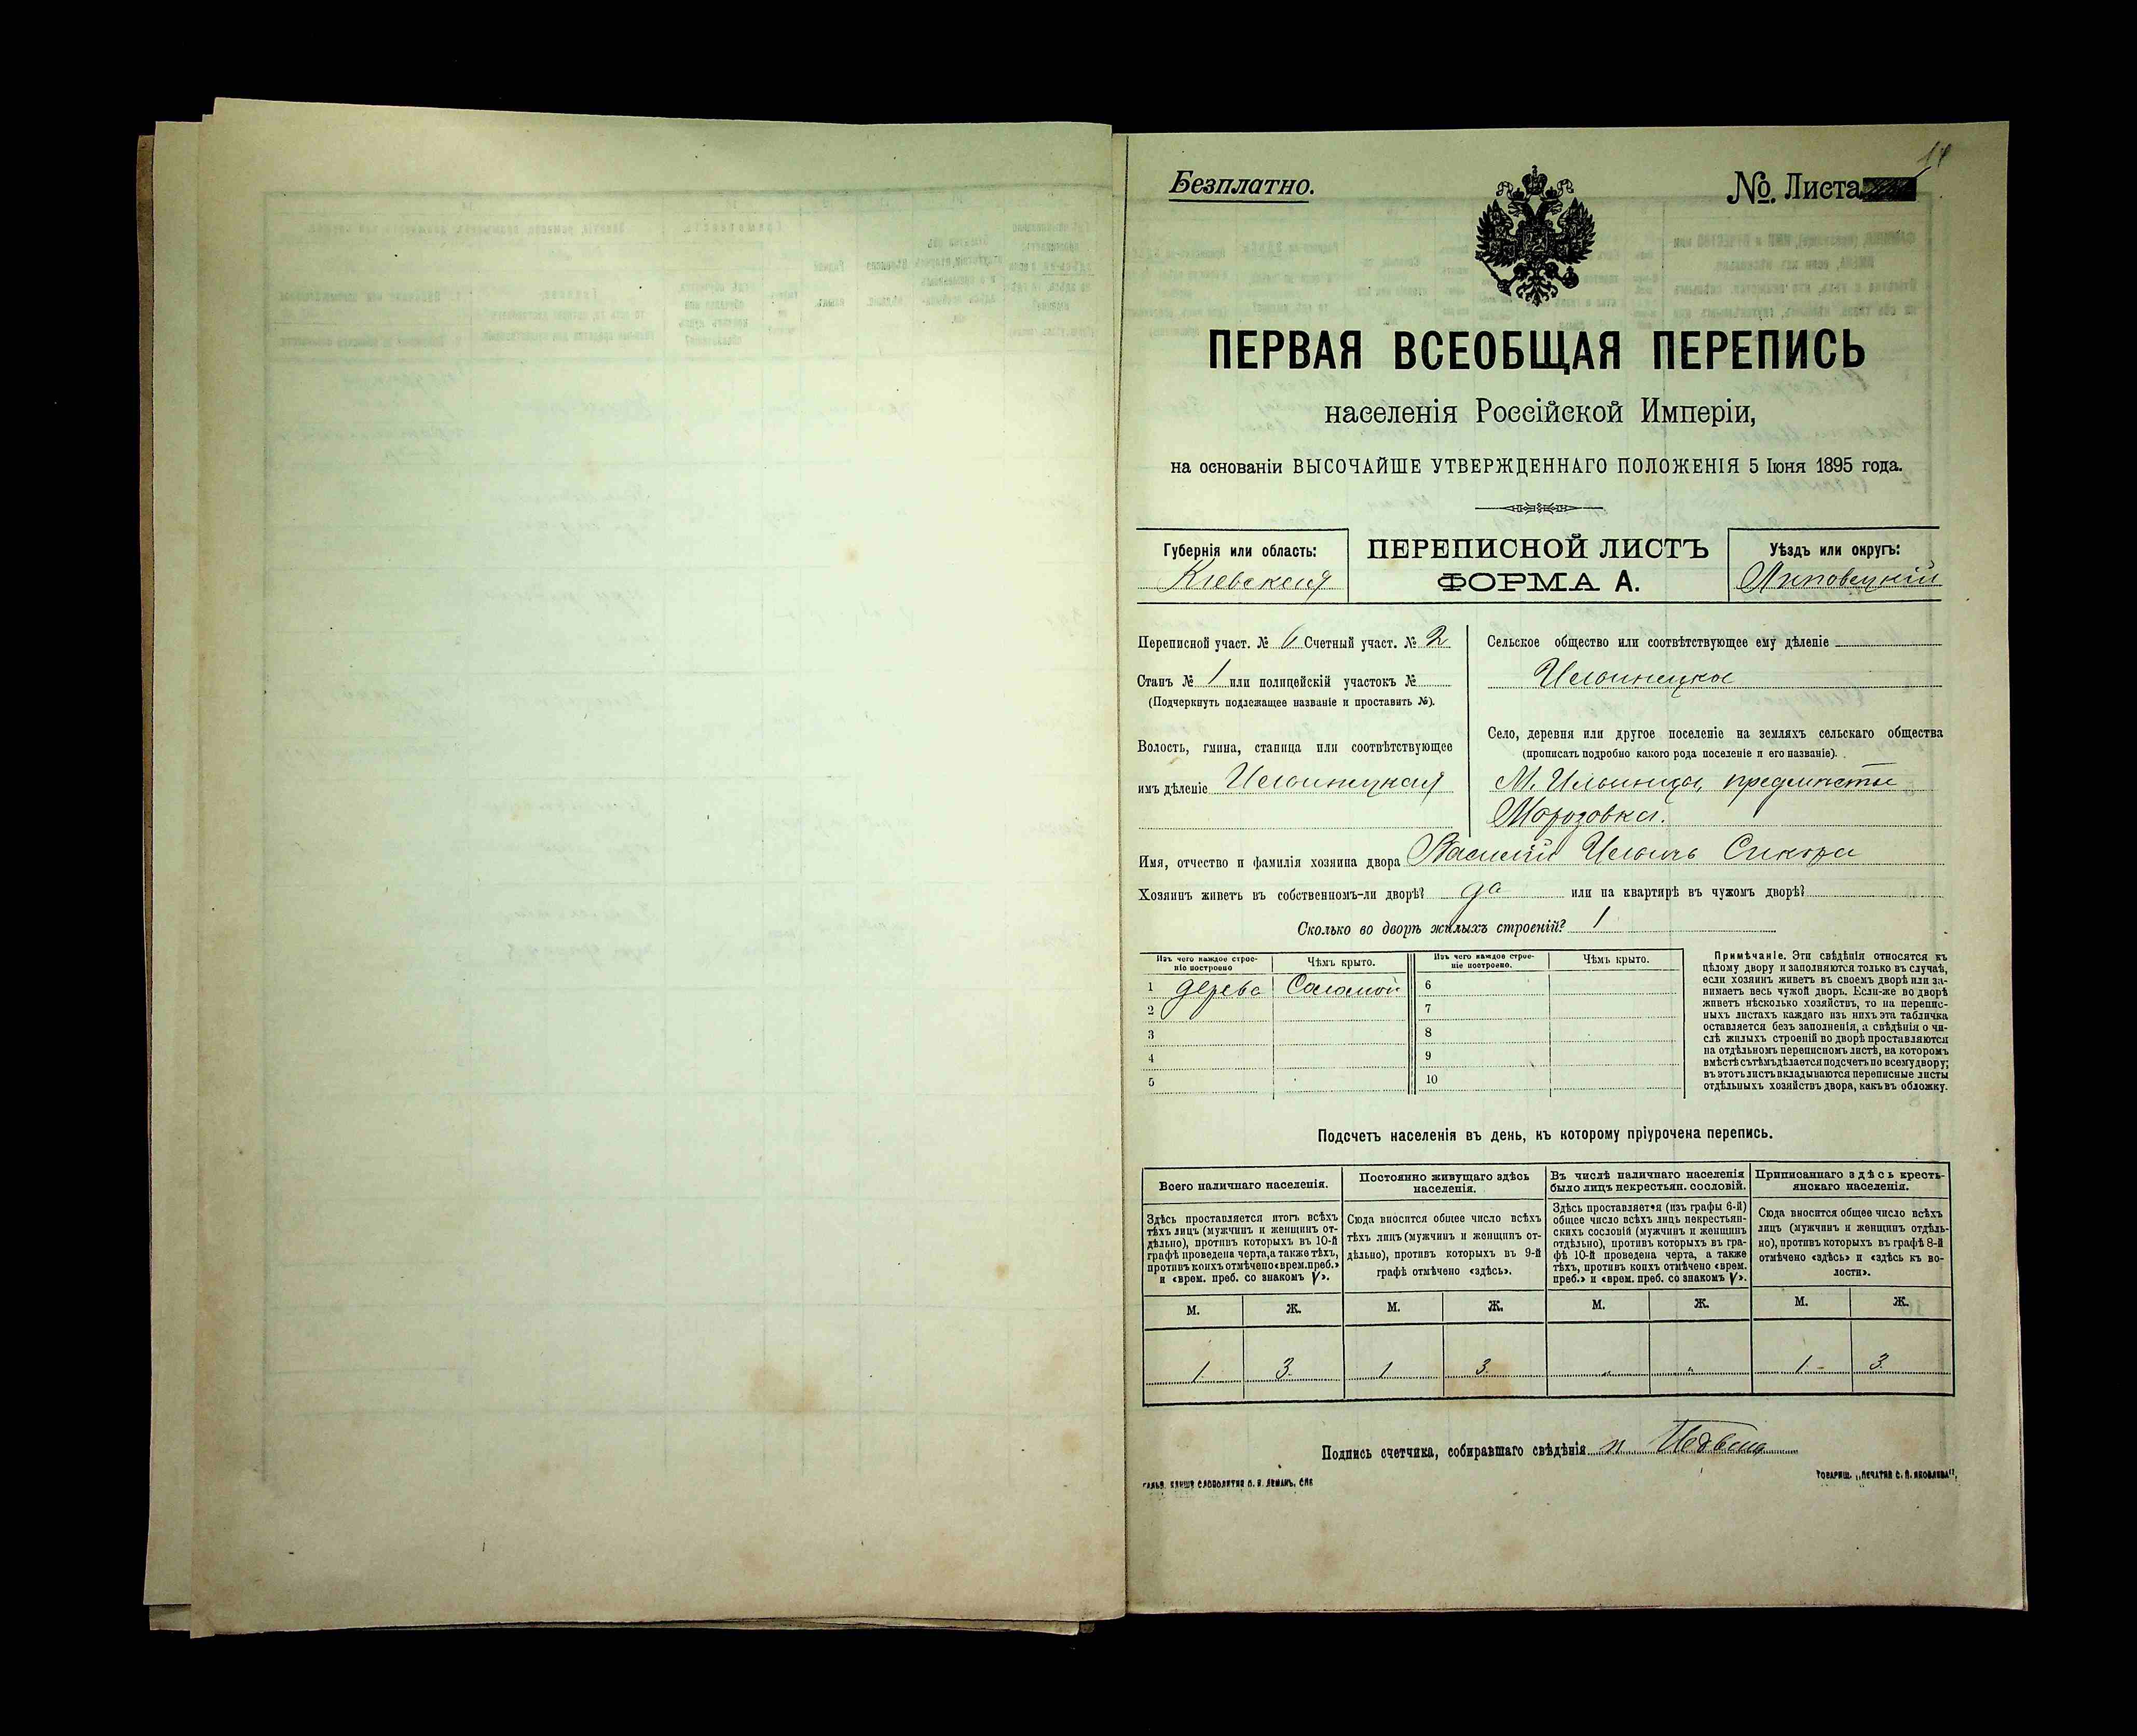 Безплатно.
№ Листа
ПЕРВАЯ ВСЕОБЩАЯ ПЕРЕПИСЬ
населенія Россійской Имперіи,
на основаніи ВЫСОЧАЙШЕ УТВЕРЖДЕННАГО ПОЛОЖЕНІЯ 5 Іюня 1895 года.
Губернія или область:
Кіевская
ПЕРЕПИСНОЙ ЛИСТЪ
ФОРМА А.
Уѣздъ или округъ:
Липовецкій
Переписной участ. № 6 Счетный участ. № 2
Станъ № 1 или полицейскій участокъ №
(Подчеркнуть подлежащее названіе и проставить №).
Волость, гмина, станица или соотвѣтствующее
имъ дѣленіе Ильинецкая
Сельское общество или соотвѣтствующее ему дѣленіе
Ильинецкое
Село, деревня или другое поселеніе на земляхъ сельскаго общества
(прописать подробно какого рода поселеніе и его названіе).
М. Ильинцы, предмистье
Морозовка.
Имя, отчество и фамилія хозяина двора Василій Ильичъ Сикора
Хозяинъ живетъ въ собственномъ-ли дворѣ? да или на квартирѣ въ чужомъ дворѣ?
Сколько во дворѣ жилыхъ строеній? 1
Изъ чего каждое строе-
ніе построено
Чѣмъ крыто.
Изъ чего каждое строе-
ніе построено.
Чѣмъ крыто.
1 дерева Соломой 6
2 7
3 8
4 9
5 10
Примѣчаніе. Эти свѣдѣнія относятся къ
цѣлому двору и заполняются только въ случаѣ,
если хозяинъ живетъ въ своемъ дворѣ или за-
нимаетъ весь чужой дворъ. Если-же во дворѣ
живетъ нѣсколько хозяйствъ, то на перепис-
ныхъ листахъ каждаго изъ нихъ эта табличка
оставляется безъ заполненія, а свѣдѣнія о чи-
слѣ жилыхъ строеній во дворѣ проставляются
на отдѣльномъ переписномъ листѣ, на которомъ
вмѣстѣ съ тѣмъ дѣлается подсчетъ по всему двору;
въ этотъ листъ вкладываются переписные листы
отдѣльныхъ хозяйствъ двора, какъ въ обложку.
Подсчетъ населенія въ день, къ которому пріурочена перепись.
Всего наличнаго населенія.
Здѣсь проставляется итогъ всѣхъ
тѣхъ лицъ (мужчинъ и женщинъ от-
дѣльно), противъ которыхъ въ 10-й
графѣ проведена черта, а также тѣхъ,
противъ коихъ отмѣчено «врем. преб.»
и «врем. преб. со знакомъ V».
Постоянно живущаго здѣсь
населенія.
Сюда вносится общее число всѣхъ
тѣхъ лицъ (мужчинъ и женщинъ от-
дѣльно), противъ которыхъ въ 9-й
графѣ отмѣчено «здѣсь».
Въ числѣ наличнаго населенія
было лицъ некрестьян. сословій.
Здѣсь проставляется (изъ графы 6-й)
общее число всѣхъ лицъ некрестьян-
скихъ сословій (мужчинъ и женщинъ
отдѣльно), противъ которыхъ въ гра-
фѣ 10-й проведена черта, а также
тѣхъ, противъ коихъ отмѣчено «врем.
преб.» и «врем. преб. со знакомъ V».
Приписаннаго здѣсь кресть-
янскаго населенія.
Сюда вносится общее число всѣхъ
лицъ (мужчинъ и женщинъ отдѣль-
но), противъ которыхъ въ графѣ 8-й
отмѣчено «здѣсь» и «здѣсь къ во-
лости».
М. Ж. М. Ж. М. Ж. М. Ж.
1 3. 1 3. " " 1 3
Подпись счетчика, собиравшаго свѣдѣнія
ТОВАРИЩ. „ПЕЧАТНЯ С. П. ЯКОВЛЕВА“.